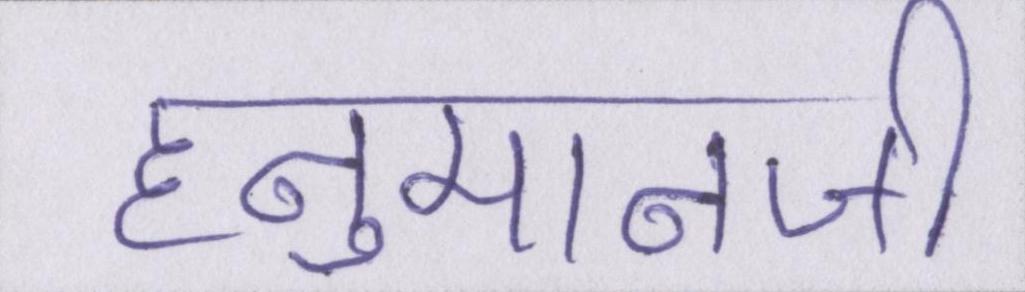 हनुमानजी